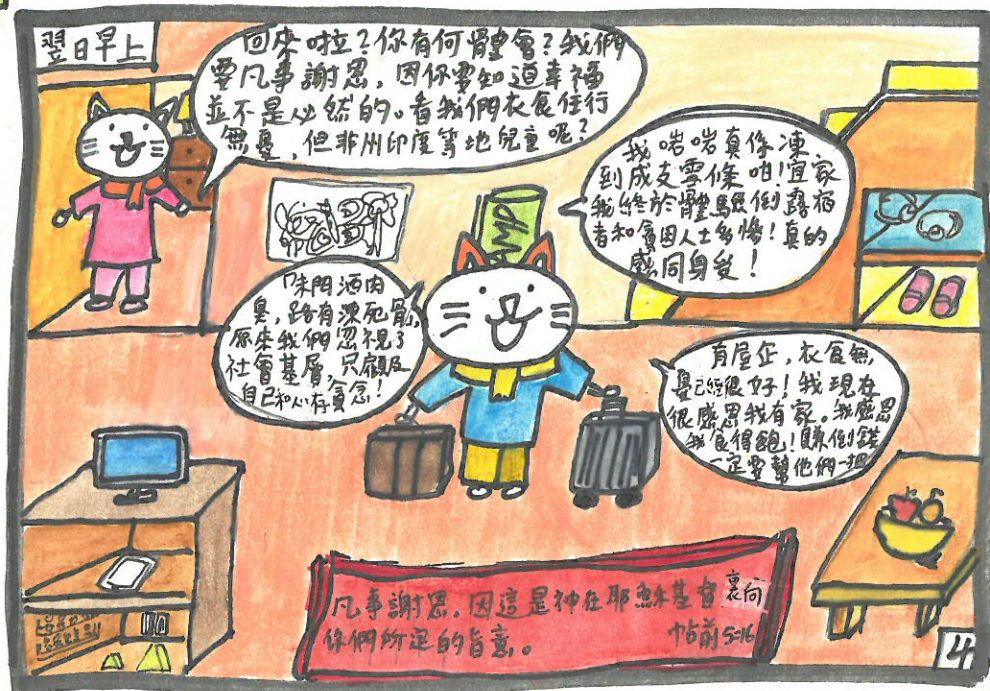 翌日早上
回來啦？你有何體會？我們
要凡事謝恩，因你要知道幸福
並不是必然的。看我們衣食住行
無憂，但非州印度等地兒童呢？
我啱啱真係凍
到成支雪條咁！宜家
我終於體驗倒露宿
者和貧困人士多慘！真的
感同身受！
朱門酒肉
臭，路有凍死骨，
原來我們忽視了
社會基層，只顧及
自己和心存貪念！
有屋企，衣食無
憂已經很好！我現在
很感恩我有家。我感恩
我食得飽！賺倒錢
一定要幫他們一把
凡事謝恩，因這是神在耶穌基督裏向
你們所定的旨意。
帖前5:16
4